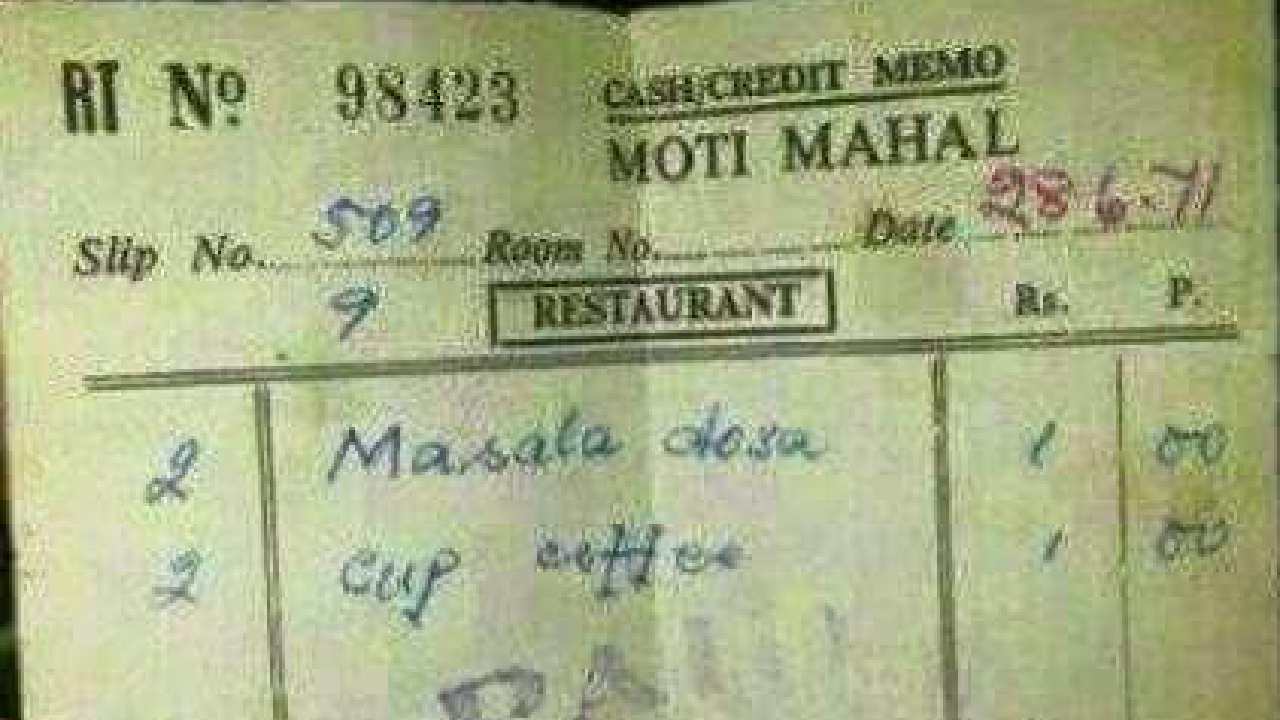 RT Nº 98423
CASH/CREDIT MEMO
MOTI MAHAL
Slip No. 509 Room No. Date 28.6.71
9
RESTAURANT Rs. P.
2 Masala dosa 1 00
2 cup coffee 1 00